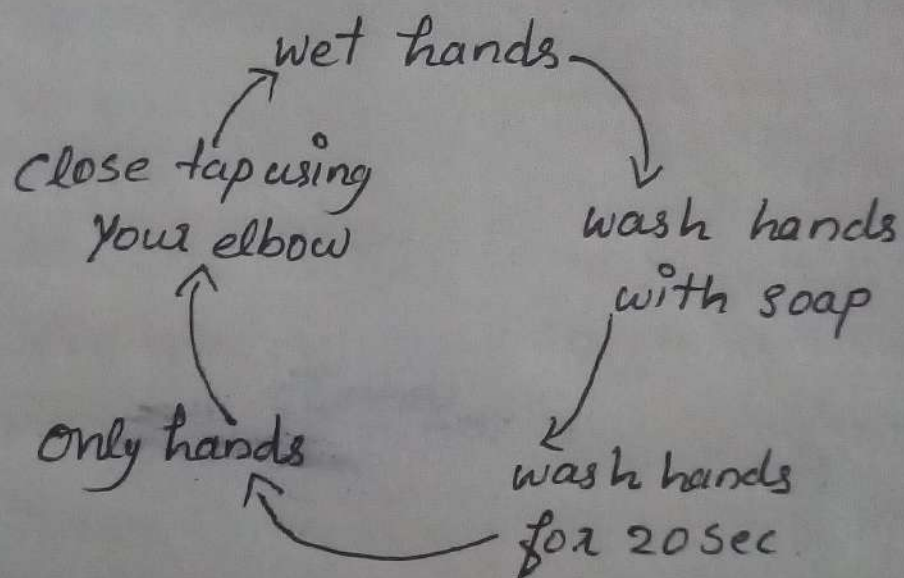 wet hands
wash hands
with soap
wash hands
for 20 sec
Only hands
Close tap using
your elbow